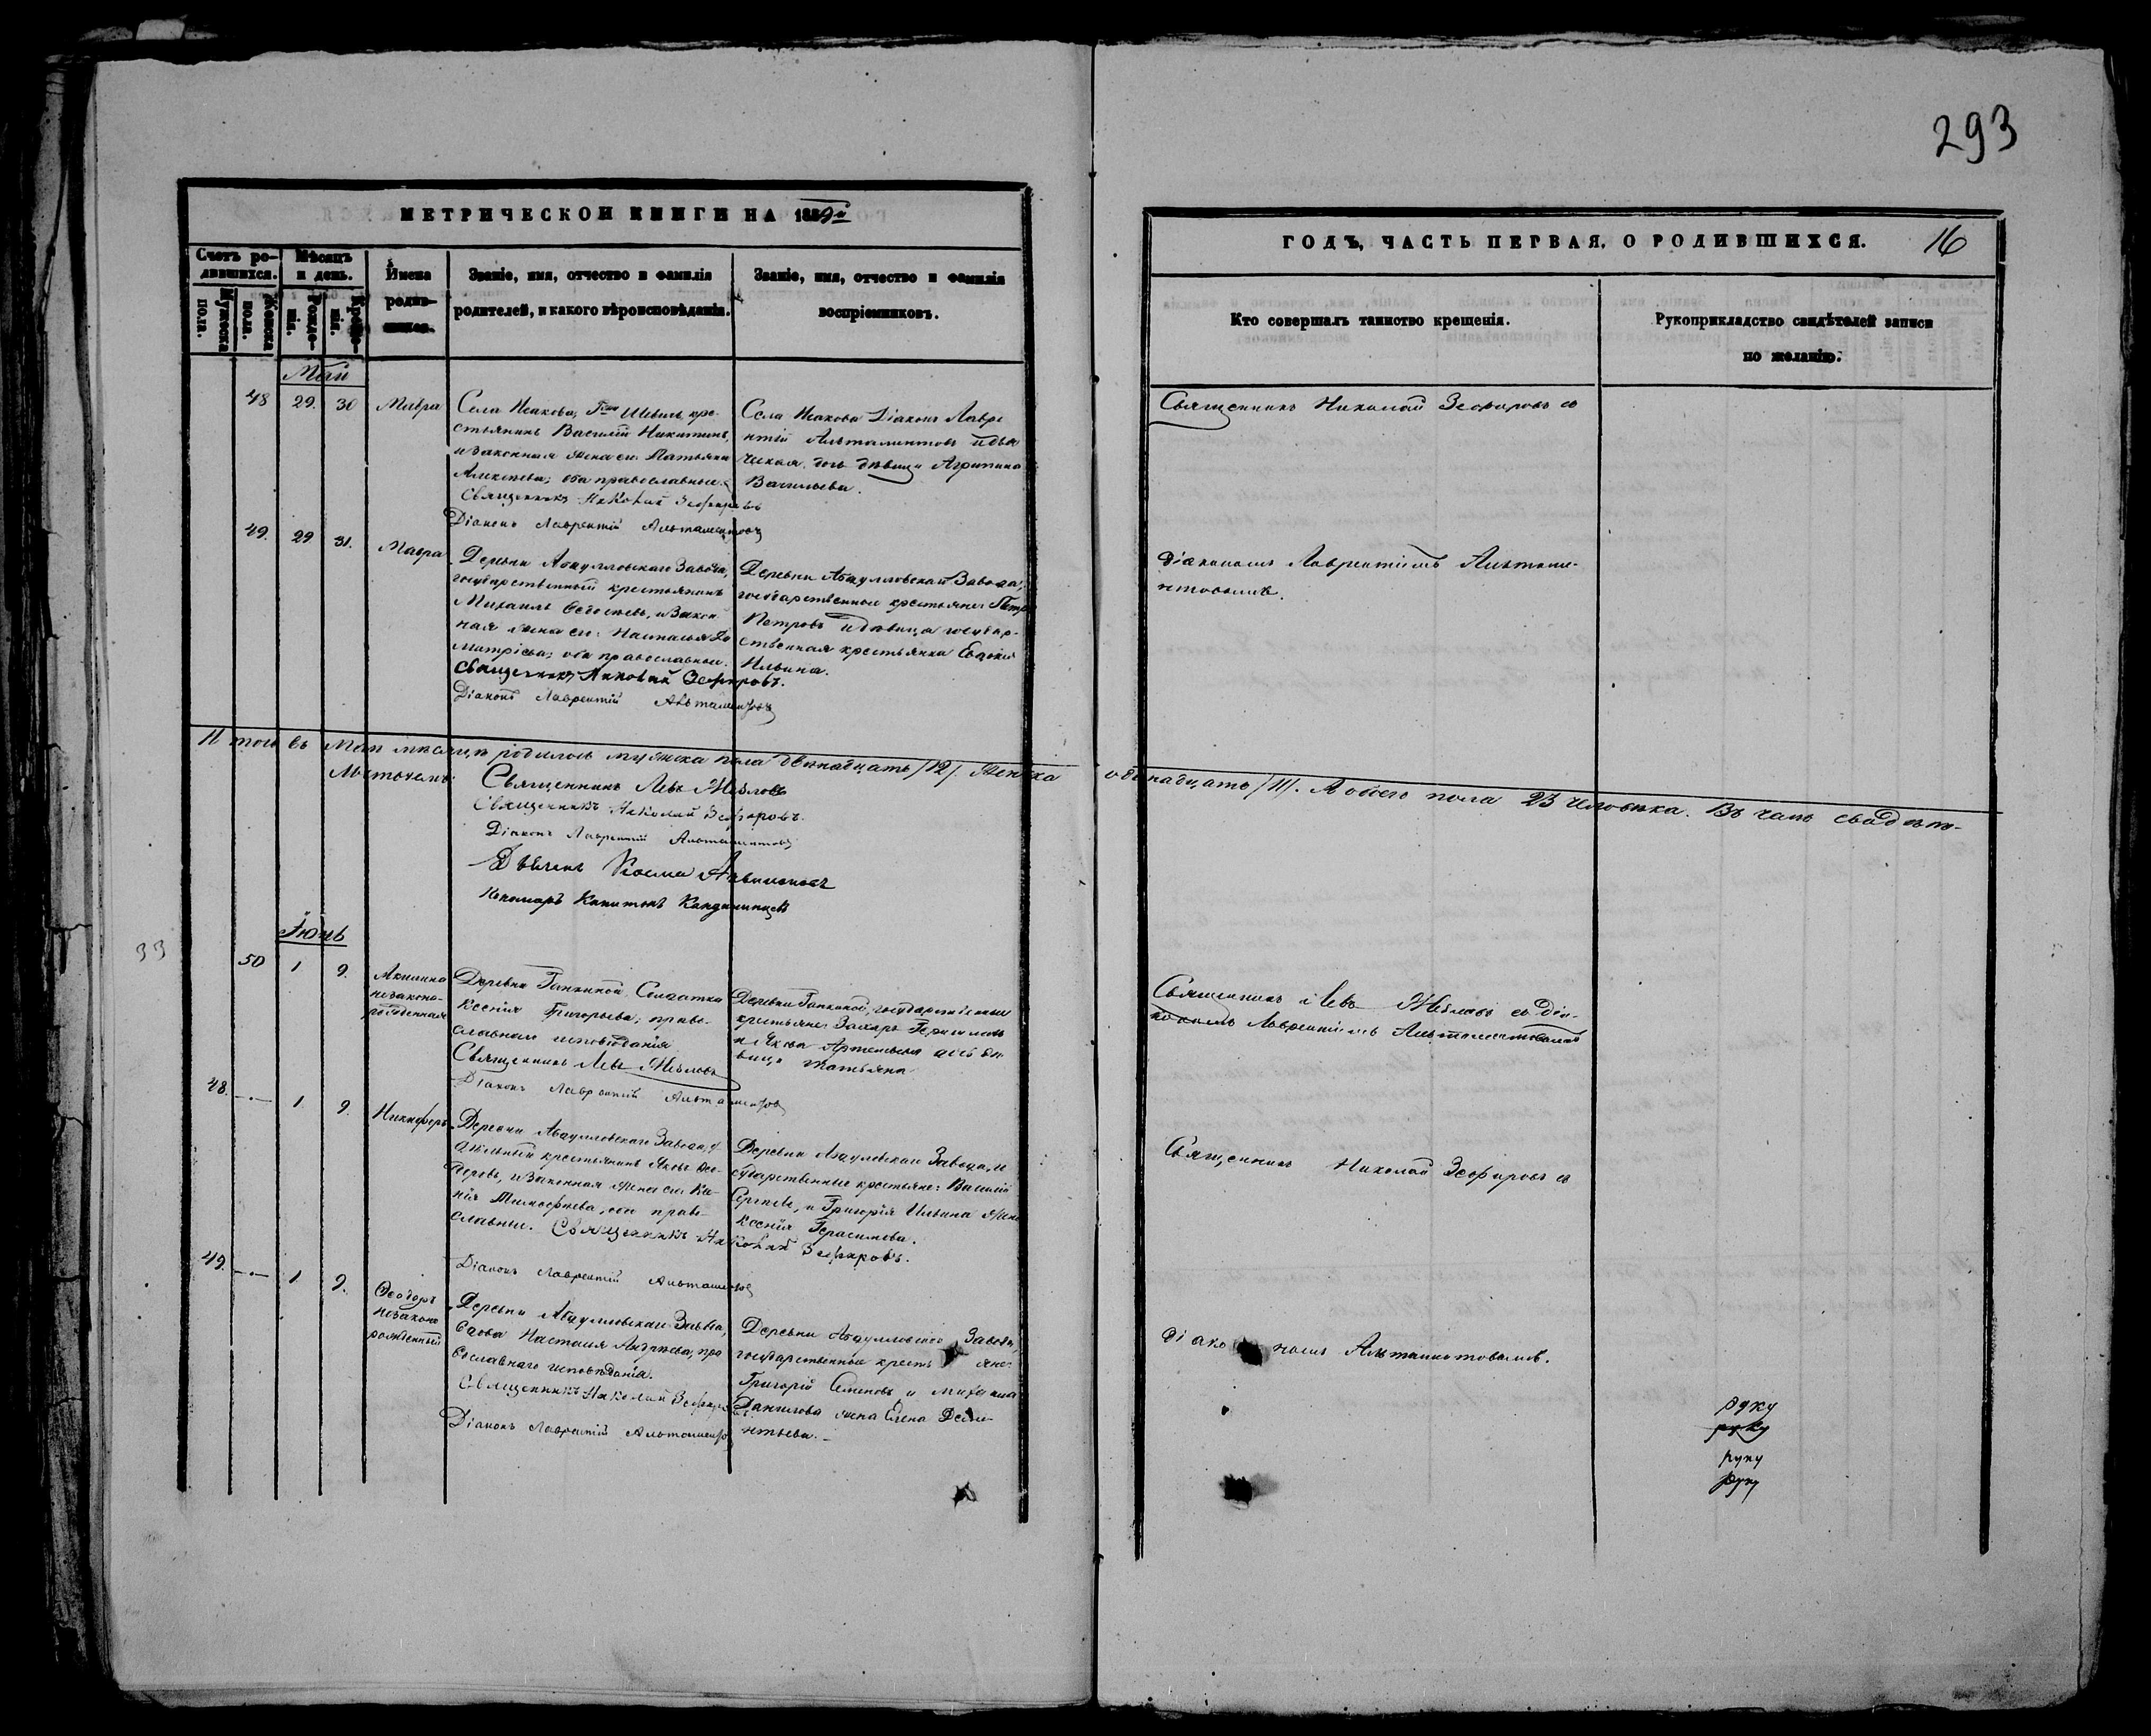 293
МЕТРИЧЕСКОЙ КНИГИ НА 18
ГОДЪ, ЧАСТЬ ПЕРВАЯ, О РОДИВШИХСЯ.
16
Счетъ ро-
дившихся.
Мужеска
пола.
Женска
пола.
Мѣсяцъ
и день.
Рожде-
нія.
Креще-
нія.
Имена
родив-
шихся.
Званіе, имя, отчество и фамилія
родителей, и какого вѣроисповѣданія.
Званіе, имя, отчество и фамилія
воспріемниковъ.
Кто совершалъ таинство крещенія.
Рукоприкладство свидѣтелей записи
по желанію.
Май
48 29. 30 Мавра
Села Исакова, кре-
стьянинъ Василій Никитинъ,
и законная жена его Татьяна
Алексѣева; оба православные.
Священникъ Николай Зефировъ
Діаконъ Лаврентій Альтаментовъ
Села Исакова Діаконъ Лавре
нтій Альтаментовъ и дья
ческая дочь дѣвица Агрипина
Васильева.
Священникъ Николай Зефировъ съ
49. 29 31. Мавра
Деревни Абдулловскаго Завода,
государственный крестьянинъ
Михаилъ и закон
ная жена его Настасья Ди
митріева; оба православные.
Священникъ Николай Зефировъ.
Діаконъ Лаврентій Альтаментовъ
Деревни Абдулловскаго Завода,
государственные крестьяне: Петръ
Петровъ и дѣвица государ-
ственная крестьянка Евдокія
Ильина.
Діакономъ Лаврентіемъ Альтаме-
нтовымъ.
Итого въ Маѣ мѣсяцѣ родилось мужеска пола двѣнадцать /12/. Женска одинадцать /11/. А обоего пола 23 человѣка. Въ чемъ свидѣте-
льствуемъ:
Священникъ Левъ Жезловъ
Священникъ Николай Зефировъ.
Діаконъ Лаврентій Альтаментовъ
Дьячекъ Косма
Пономарь Капитонъ
Іюнь
33
50 1 9. Акилина
незаконо-
рожденная
Деревни Ганкиной Солдатка
Ксенія Григорьева; право-
славнаго исповѣданія
Священникъ Левъ Жезловъ
Діаконъ Лаврентій Альтаментовъ
Деревни Ганкиной, государственные
крестьяне: Захаръ Герасимовъ
и Якова Артемьева дочь дѣ-
вица Татьяна
Священникъ Левъ Жезловъ съ Діа-
кономъ Лаврентіемъ Альтаментовымъ
48. 1. 9. Никифоръ
Деревни Абдулловскаго Завода, у
дѣльный крестьянинъ Яковъ Фео-
доровъ, и законная жена его Ксе-
нія Тимоѳеева, оба право-
славные. Священникъ Николай Зефировъ.
Діаконъ Лаврентій Альтаментовъ
Деревни Абдулловскаго Завода, го
сударственные крестьяне: Василій
Сергѣевъ, и Григорія Ильина жена
Ксенія Герасимова.
Священникъ Николай Зефировъ съ
49. 1 9. Ѳеодоръ
незаконо
рожденный
Деревни Абдулловскаго Завода,
вдова Настасья Андреева, пра
вославнаго исповѣданія.
Священникъ Николай Зефировъ
Діаконъ Лаврентій Альтаментовъ
Деревни Абдулловскаго Завода,
государственные крестьяне:
Григорій Семеновъ и Михаила
Данилова жена Елена
нтьева.
діакономъ Альтаментовымъ.
руку
руку
руку
руку